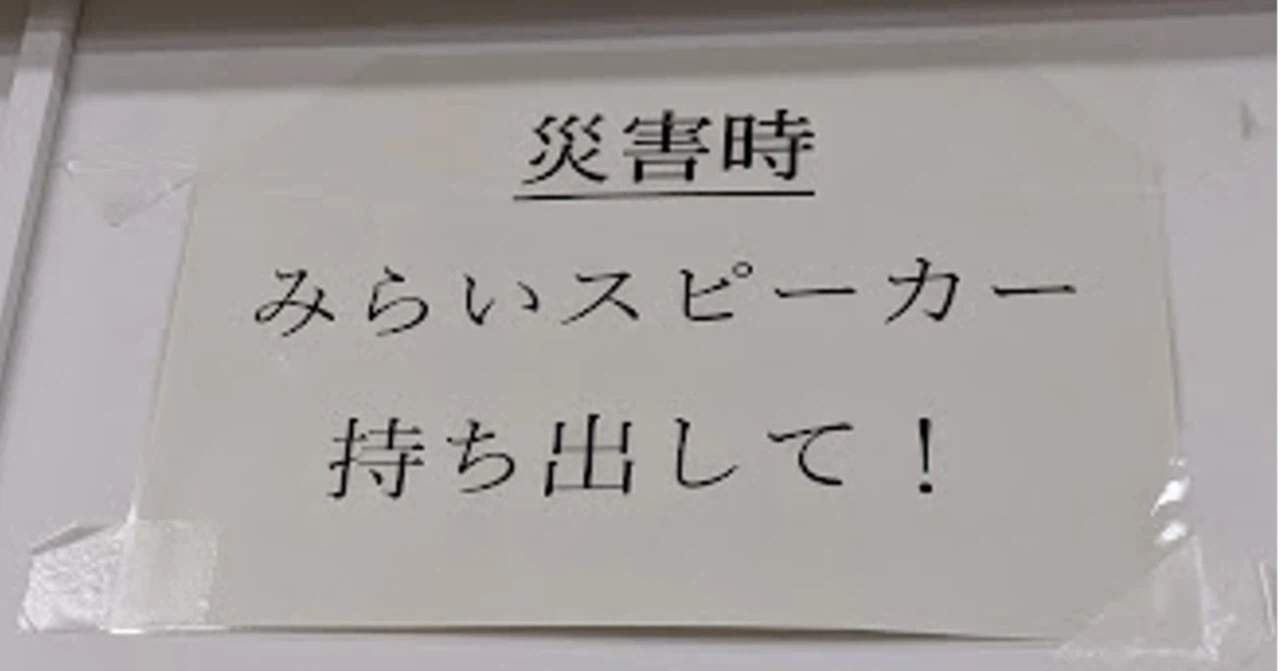 災害時
みらいスピーカー
持ち出して！